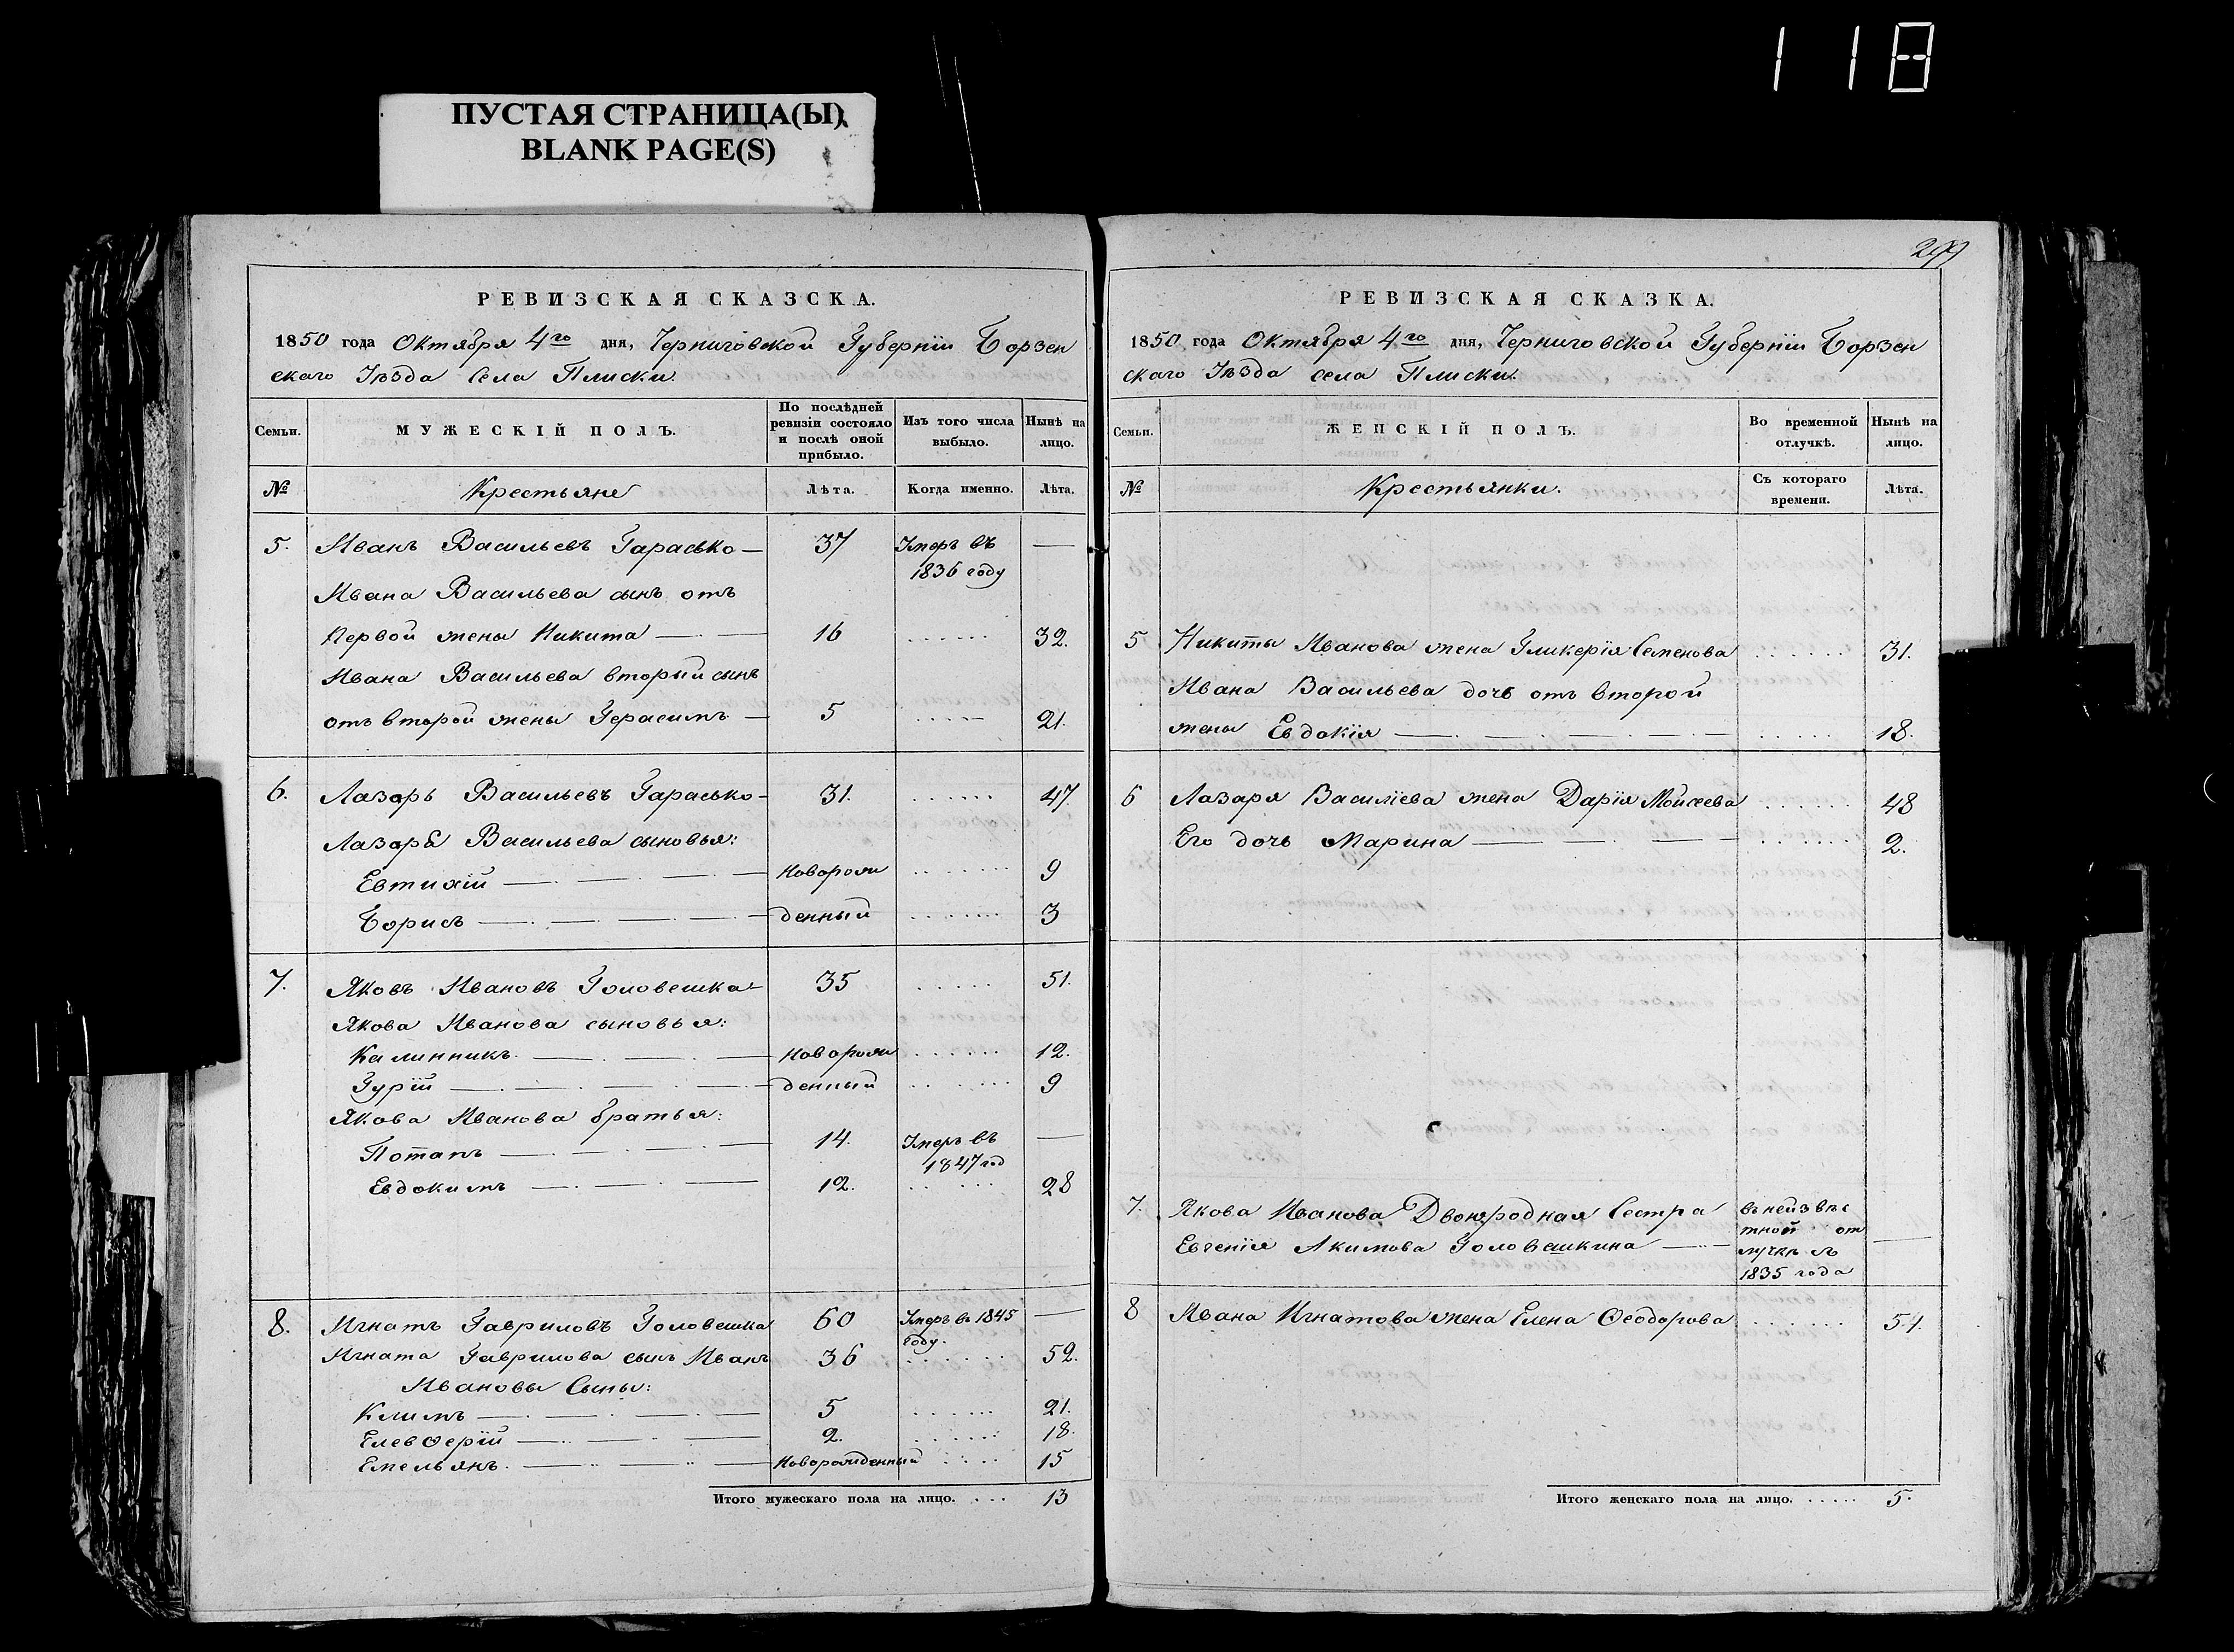 118
ПУСТАЯ СТРАНИЦА(Ы)
BLANK PAGE(S)
РЕВИЗСКАЯ СКАЗСКА.
1850 года Октября 4го дня, Черниговской Губерніи Борзен
скаго Уѣзда Села Плиски.
Семьи.
МУЖЕСКІЙ ПОЛЪ.
По послѣдней ревизіи состояло и послѣ оной прибыло.
Изъ того числа выбыло.
Нынѣ на лицо.
№ Крестьяне Лѣта. Когда именно. Лѣта.
5. Иванъ Васильевъ Гарасько — 37 Умеръ въ —
1836 году
Ивана Васильева сынъ отъ
первой жены Никита — 16 ...... 32.
Ивана Васильева вторый сынъ
отъ второй жены Герасимъ — 5 ..... 21.
6. Лазарь Васильевъ Гарасько — 31. ...... 47
Лазаря Васильева сыновья:
Евтихій — новорож ...... 9
Борисъ — денный ...... 3
7. Яковъ Ивановъ Головешка — 35 ..... 51.
Якова Иванова сыновья:
Калинникъ — новорож ...... 12.
Гурій — денный ...... 9
Якова Иванова братья:
Потапъ — 14. Умеръ въ —
1847 год
Евдокимъ — 12. ..... 28
8. Игнатъ Гавриловъ Головешка 60 Умеръ въ 1845 —
году.
Игната Гаврилова сынъ Иванъ 36 ...... 52.
Ивановы Сыны:
Климъ — 5 ...... 21.
Елевѳерій — 2. ...... 18.
Емельянъ — Новорожденный .... 15
Итого мужескаго пола на лицо. . . . 13
299
РЕВИЗСКАЯ СКАЗКА.
1850 года Октября 4го дня, Черниговской Губерніи Борзен
скаго Уѣзда села Плиски.
Семьи.
ЖЕНСКІЙ ПОЛЪ.
Во временной отлучкѣ.
Нынѣ на лицо.
№ Крестьянки. Съ котораго времени. Лѣта.
5 Никиты Иванова жена Гликерія Семенова ...... 31.
Ивана Васильева дочь отъ второй
жены Евдокія — ..... 18.
6 Лазаря Василіева жена Дарія Моисеева ...... 48
Его дочь Марина — ...... 2.
7. Якова Иванова Двоюродная Сестра въ неизвѣс
тной от
Евгенія Акимова Головешкина — лучкѣ съ —
1835 года
8 Ивана Игнатова жена Елена Ѳеодорова ...... 54.
Итого женскаго пола на лицо. . . . . . 5.